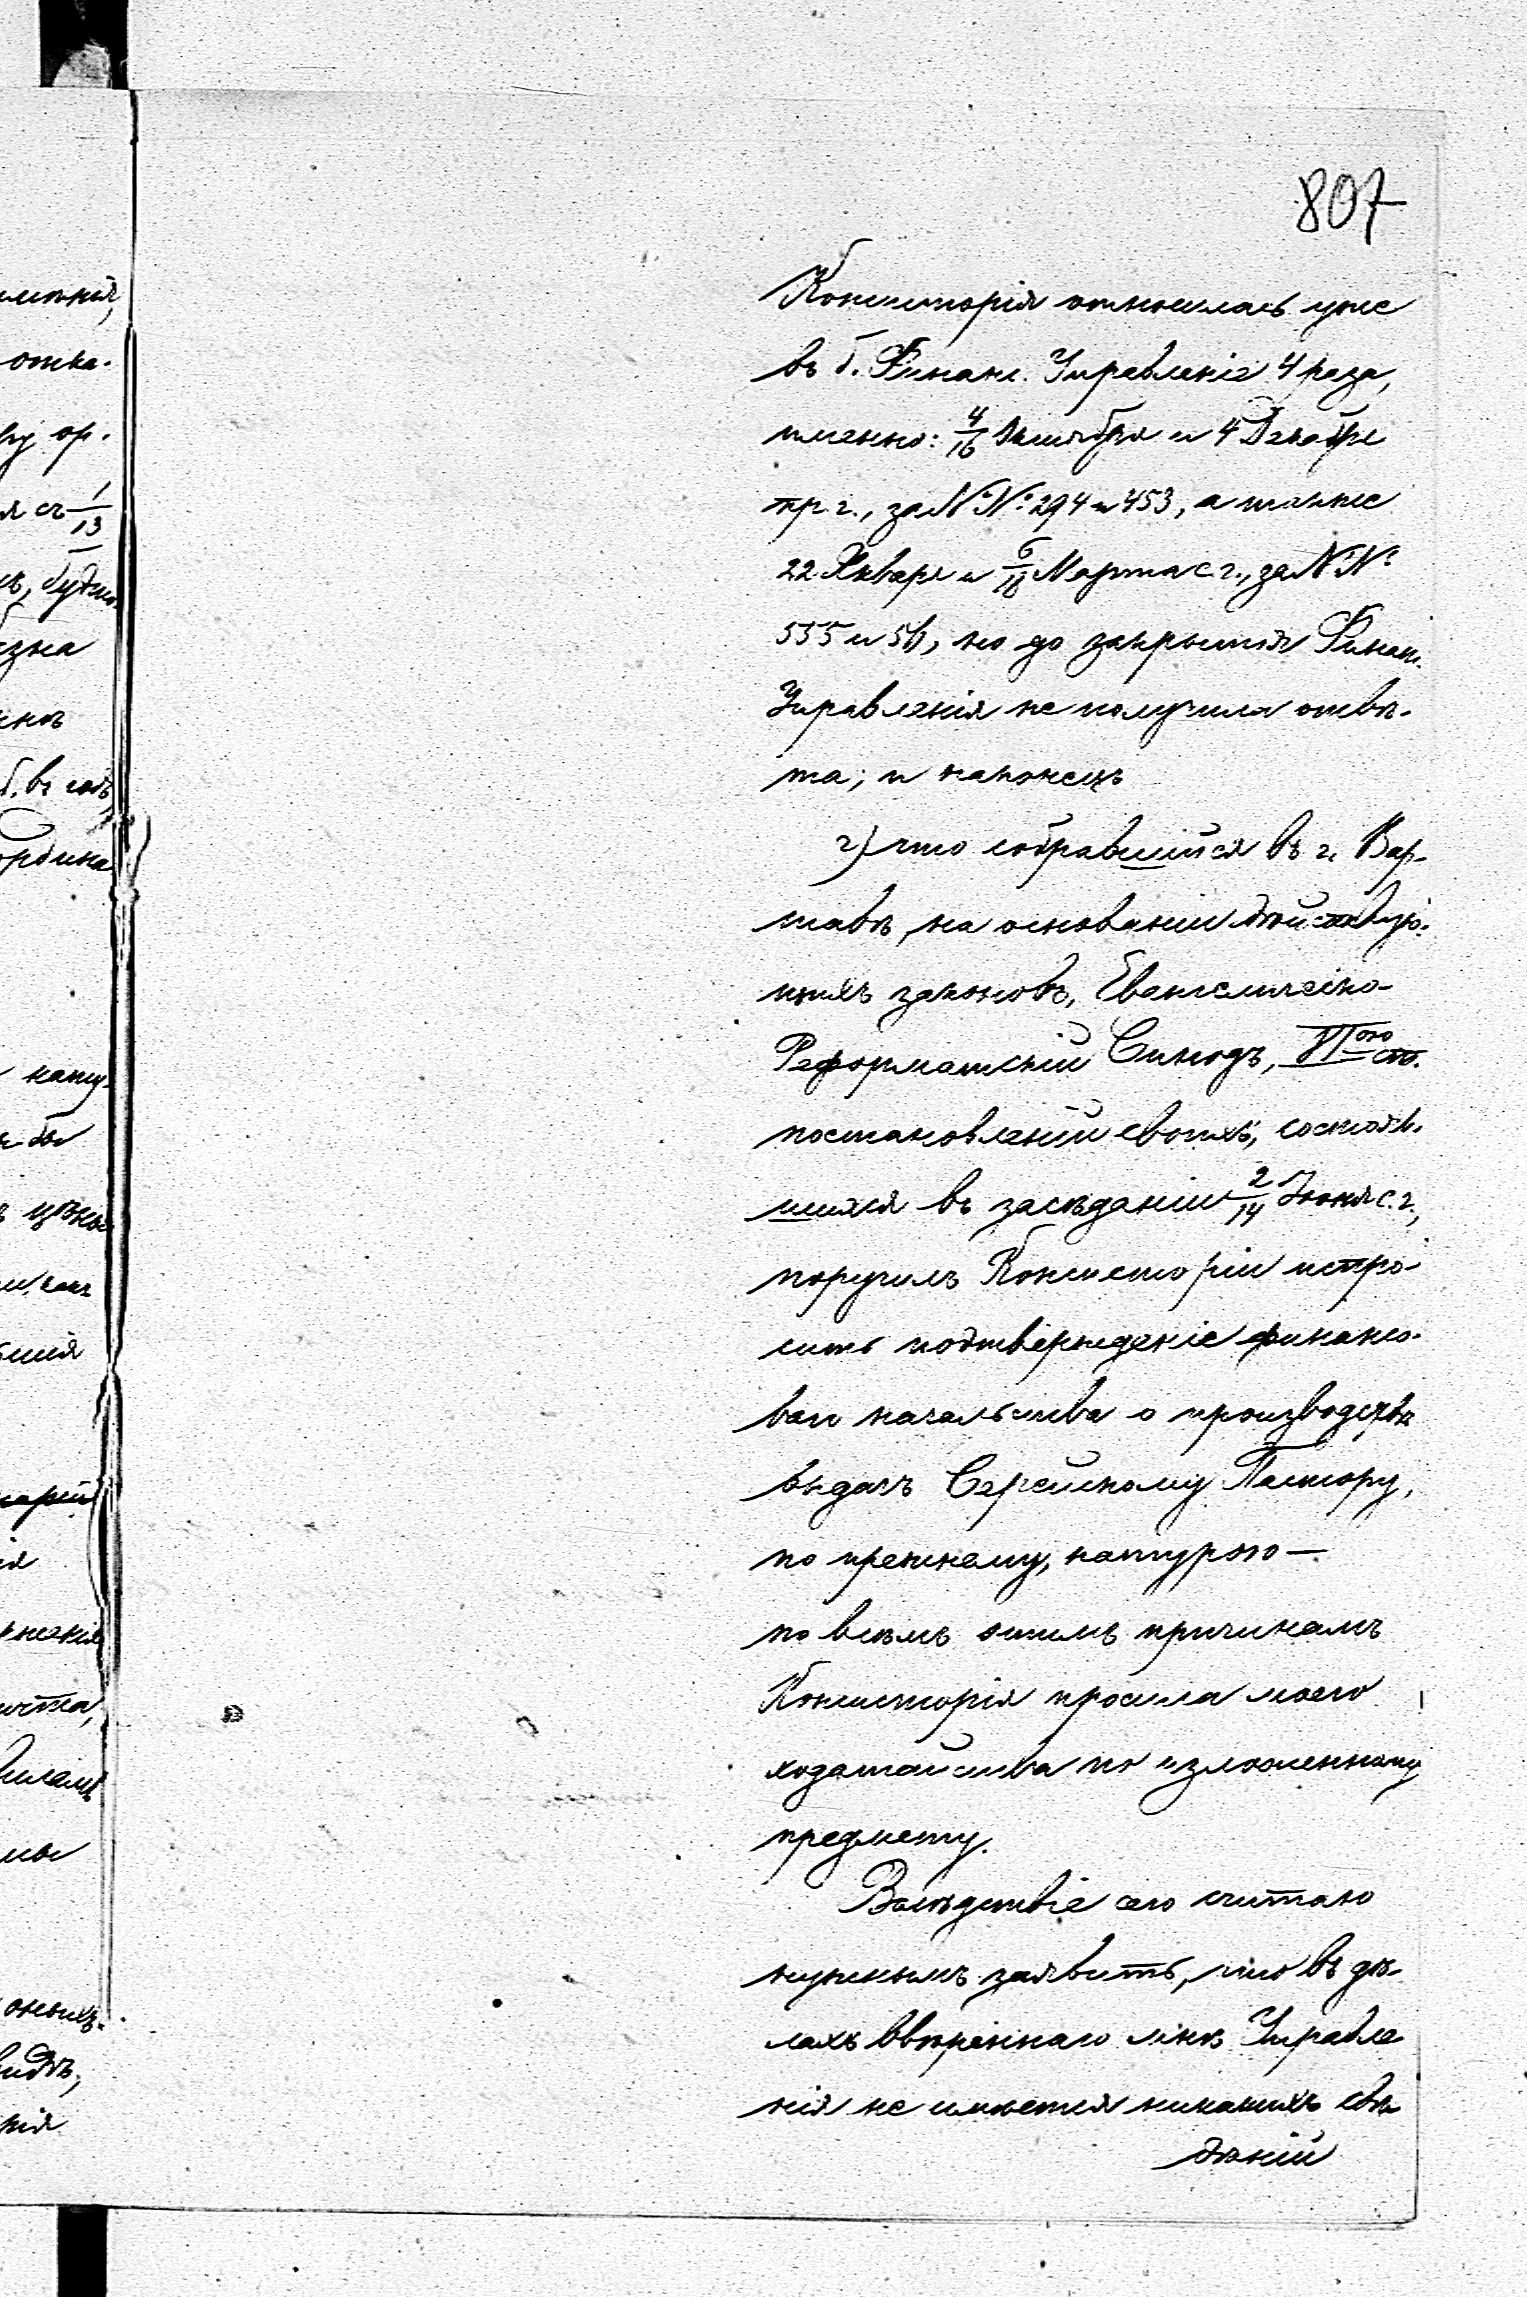 807
Консисторія относилась уже
въ б. Финанс. Управленіе 4 раза,
именно: 4/16 Октября и 4 Декабря
пр. г., за №№ 294 и 453, а также
22 Января и 6/18 Марта с. г., за №№
555 и 51, но до закрытія Финанс.
Управленія не получила отвѣ-
та; и наконецъ
г) что собравшійся въ г. Вар-
шавѣ, на основаніи дѣйствую-
щихъ законовъ, Евангелическо-
Реформатскій Синодъ, VI ою ст.
постановленій своихъ, состояв-
шихся въ засѣданіи 2/14 Іюня с. г.,
поручилъ Консисторіи испро-
сить подтвержденіе финансо-
ваго начальства о производствѣ
выдачъ Серейскому Пастору,
по прежнему, натурою —
по всѣмъ этимъ причинамъ
Консисторія просила моего
ходатайства по изложенному
предмету.
Вслѣдствіе сего считаю
нужнымъ заявить, что въ дѣ-
лахъ ввѣреннаго мнѣ Управле
нія не имѣется никакихъ свѣ-
дѣній